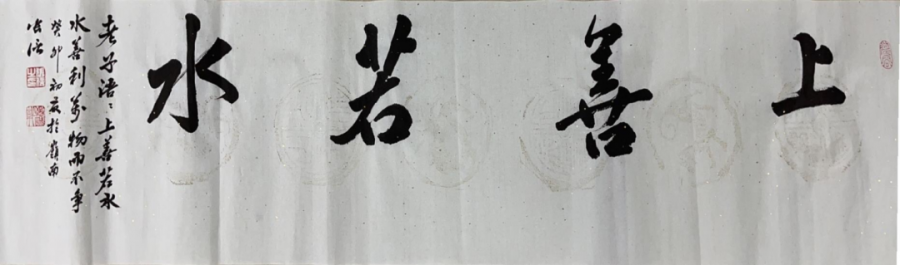 上善若水
老子语：上善若水
水善利万物而不争
癸卯初夏於岭南